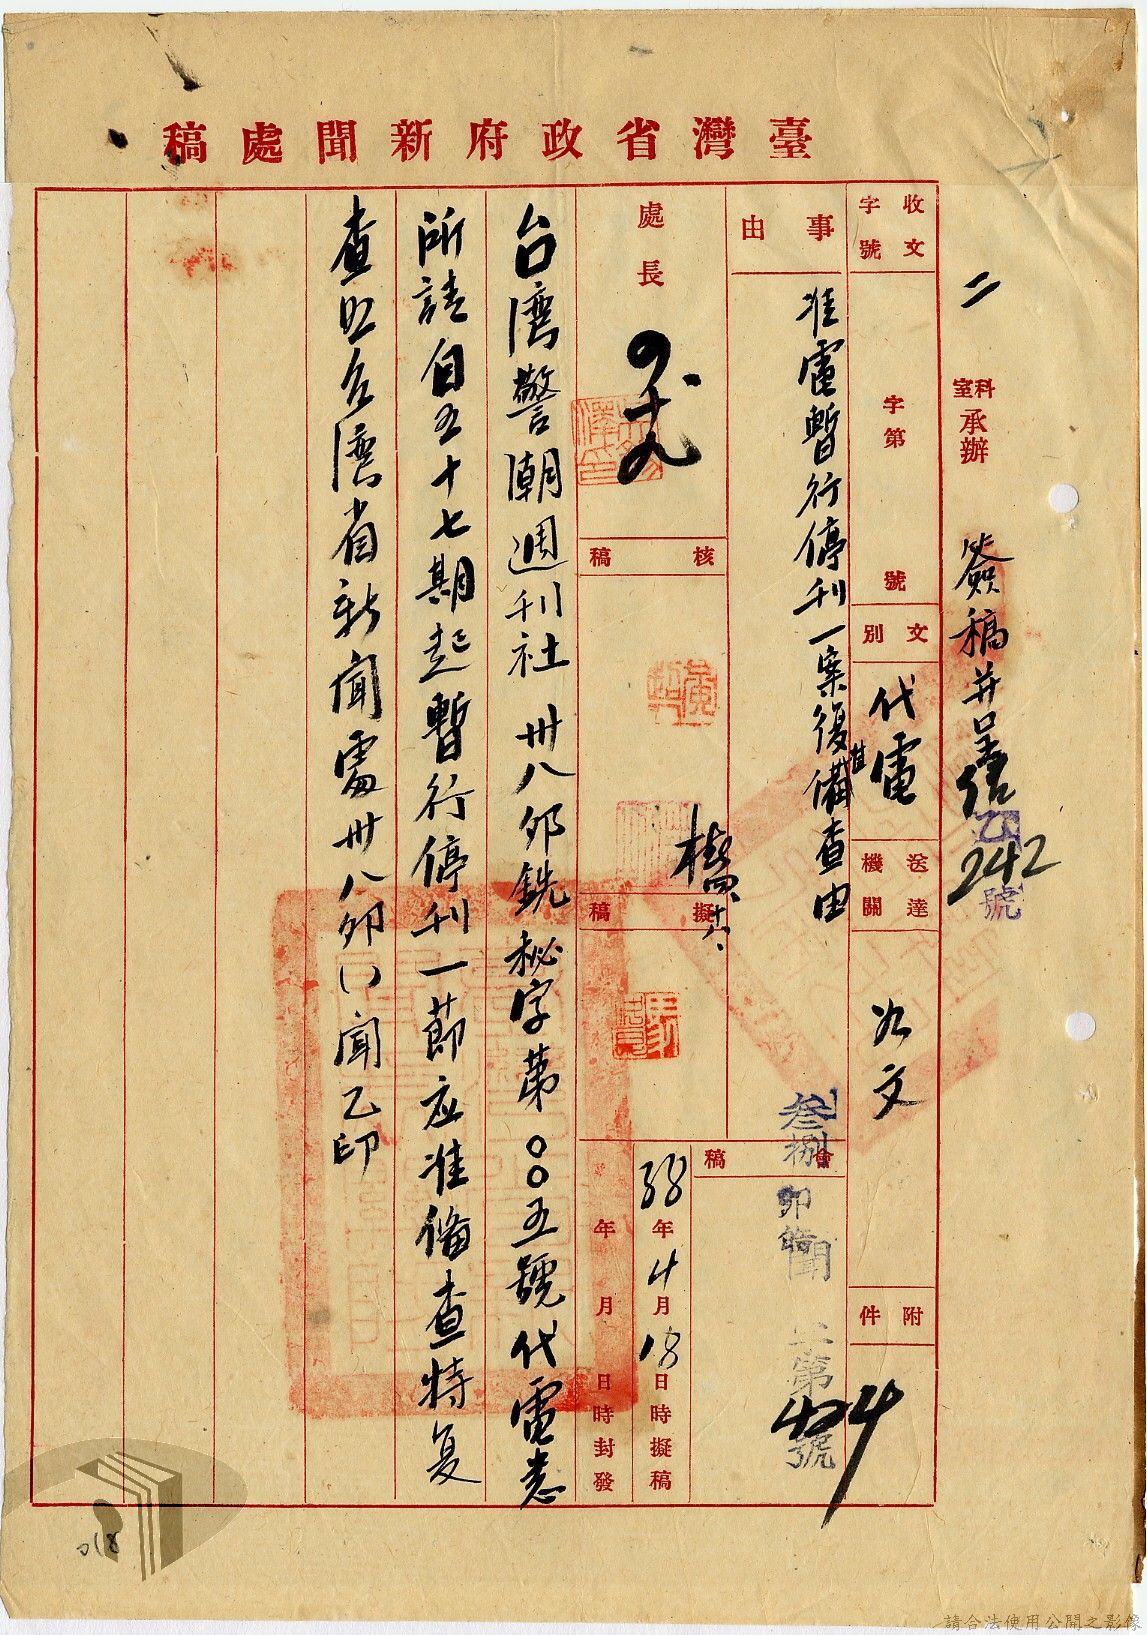 臺灣省政府新聞處稿
二 科室承辦 簽稿并呈 乙242號
收文字號 字第 號
文別 代電
送達機關 如文
附件
事由 准電暫行停刊一案復請備查由
會稿
叁捌卯 聞 第424號
處長
核稿
橘 四、十八、
擬稿
38年4月18日時擬稿
年 月 日時封發
台灣警潮週刊社 卅八卯銑秘字第〇〇五號代電悉
所請自五十七期起暫行停刊一節应准備查特复
查照台灣省新聞處卅八卯()聞乙印
018
請合法使用公開之影像